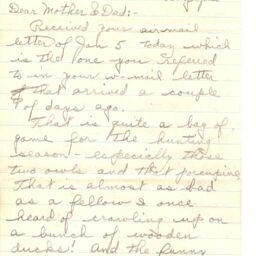 Dear Mother & Dad:-
Received your air mail
letter of Jan 5 today which
is the one you referred
to in your v-mail letter
that arrived a couple
of days ago.
That is quite a bag of
game for the hunting
season - especially those
two owls and that porcupine
That is almost as bad
as a fellow I once
heard of crawling up on
a bunch of wooden
ducks! And the funny